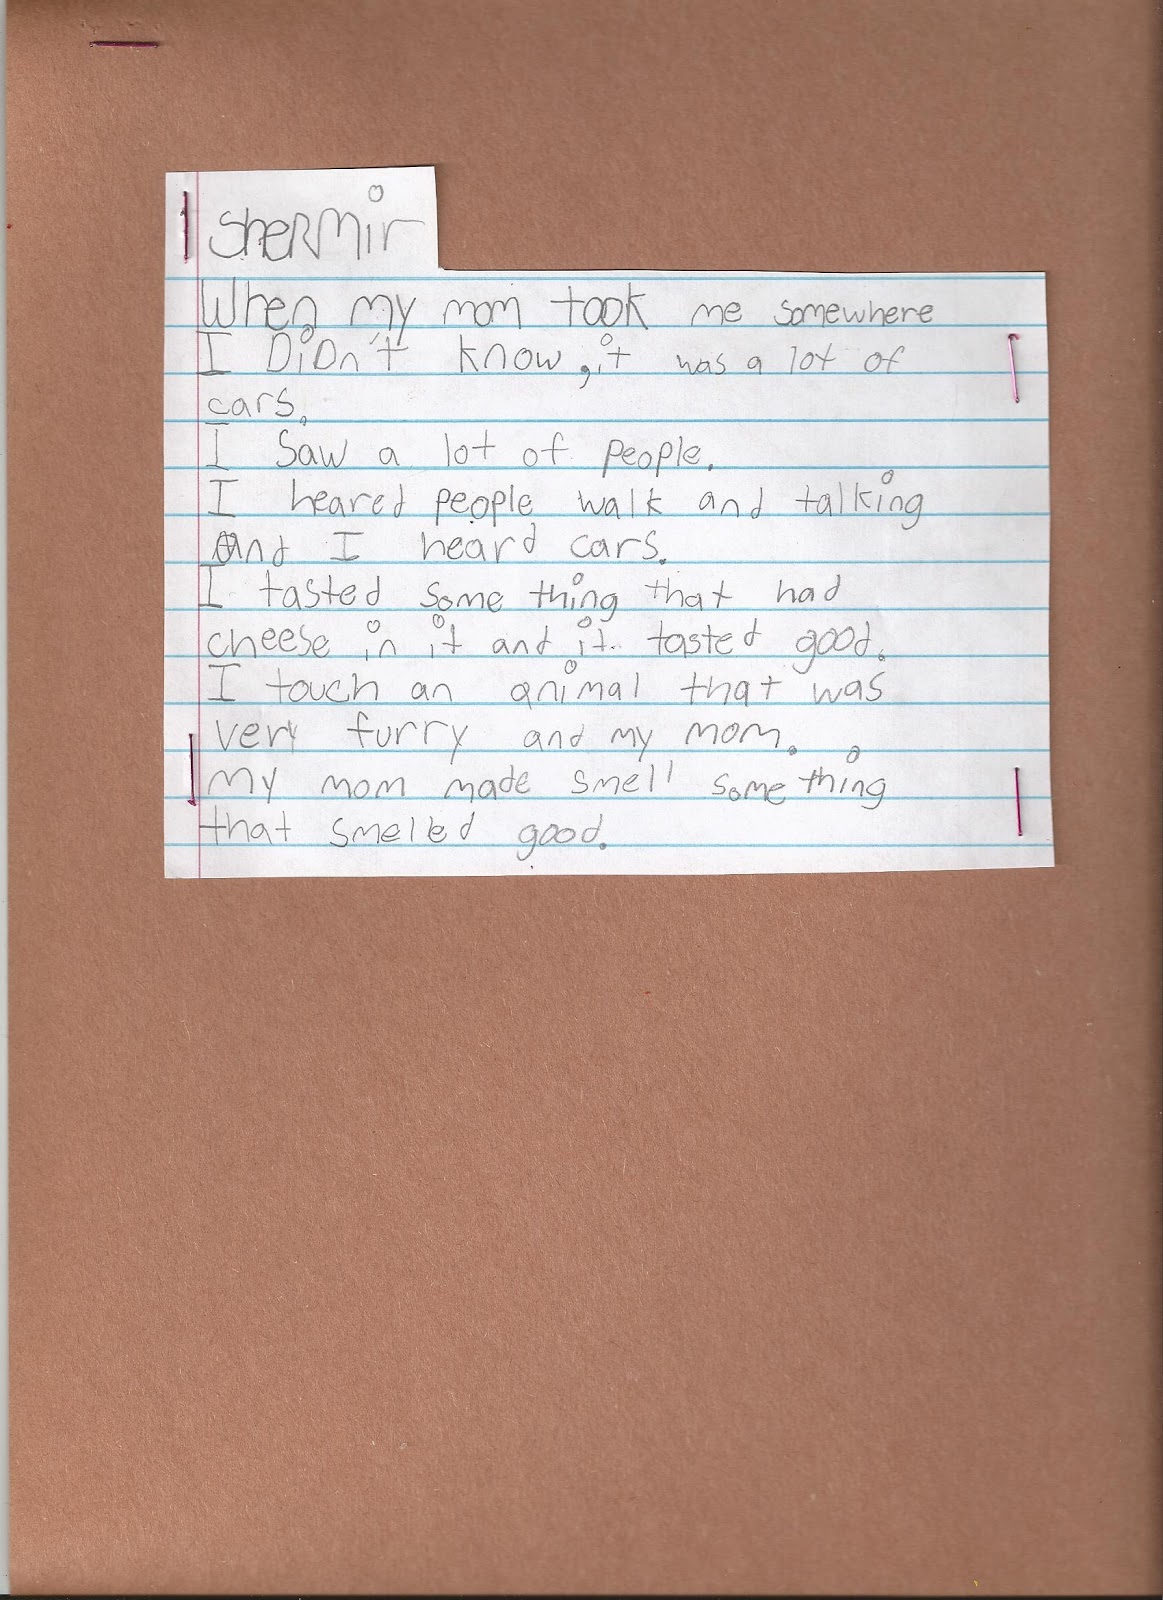 SheRMir
When my mom took me somewhere
I DiDn't know, it was a lot of
cars.
I saw a lot of people.
I heared people walk and talking
and I heard cars.
I tasted some thing that had
cheese in it and it tasted good.
I touch an animal that was
very furry and my mom.
My mom made smell some thing
that smelled good.